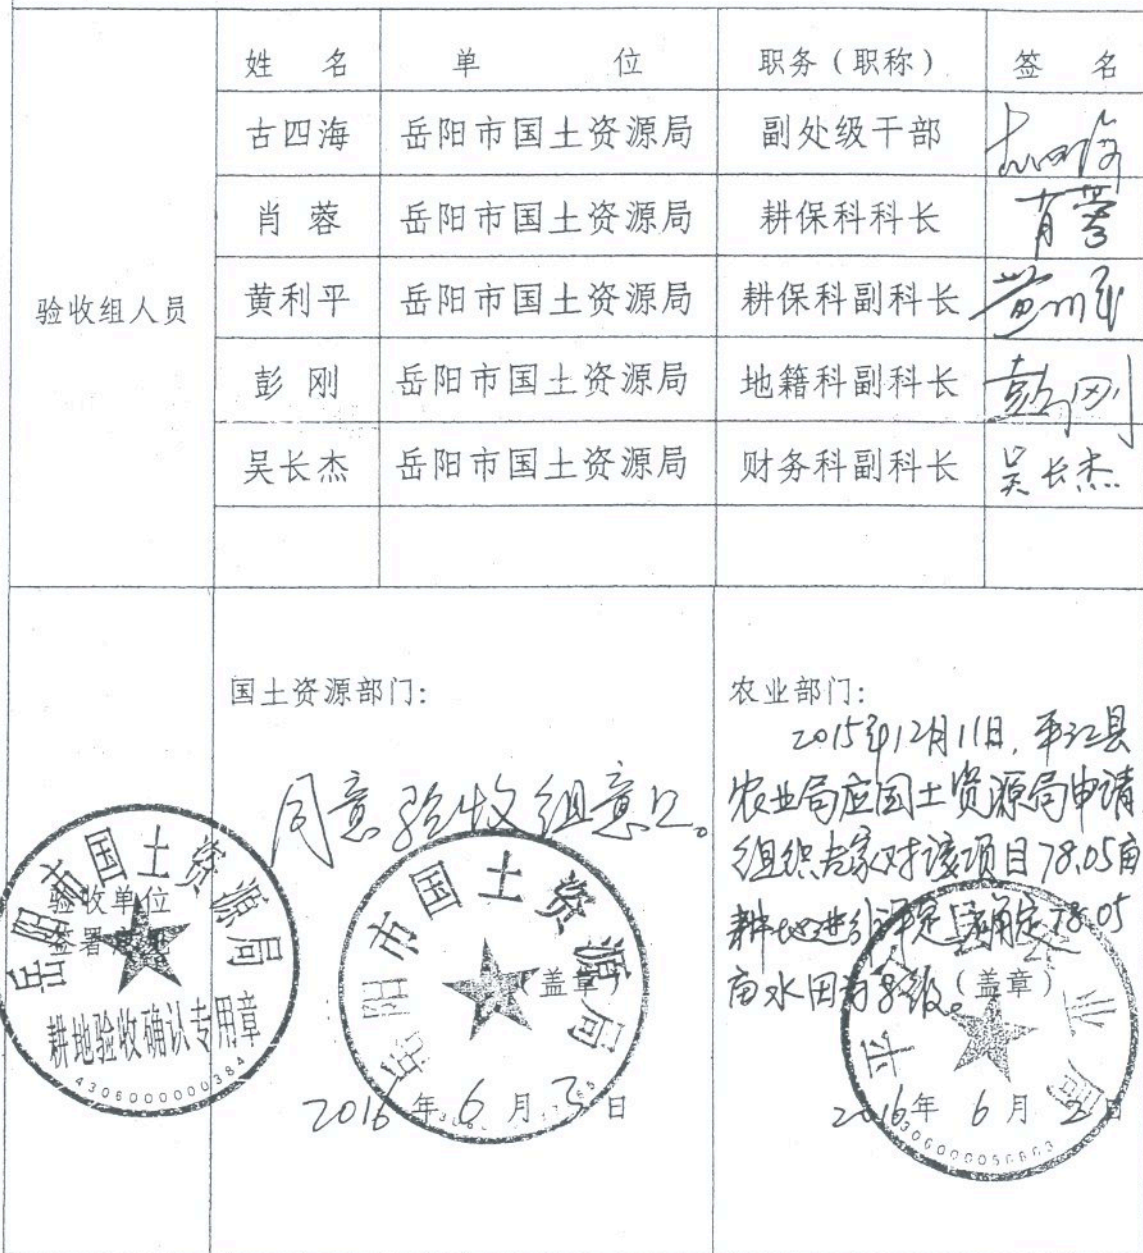 姓 名 单 位 职务（职称） 签 名
验收组人员
古四海 岳阳市国土资源局 副处级干部 古四海
肖 蓉 岳阳市国土资源局 耕保科科长 肖蓉
黄利平 岳阳市国土资源局 耕保科副科长 黄利平
彭 刚 岳阳市国土资源局 地籍科副科长 彭刚
吴长杰 岳阳市国土资源局 财务科副科长 吴长杰
验收单位
签署
岳阳市国土资源局
耕地验收确认专用章
4306000000384
国土资源部门：
同意验收组意见。
岳阳市国土资源局
（盖章）
2016年 6 月 3 日
农业部门：
2015年12月11日，平江县
农业局应国土资源局申请
组织专家对该项目78.05亩
耕地进行评定，确定78.05
亩水田为8级。
（盖章）
平 业局
2016年 6 月 2 日